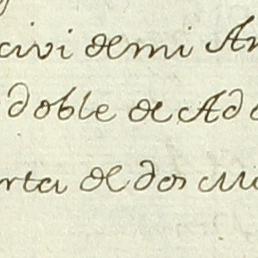 civi de mi An
doble de Ad
rta de dos